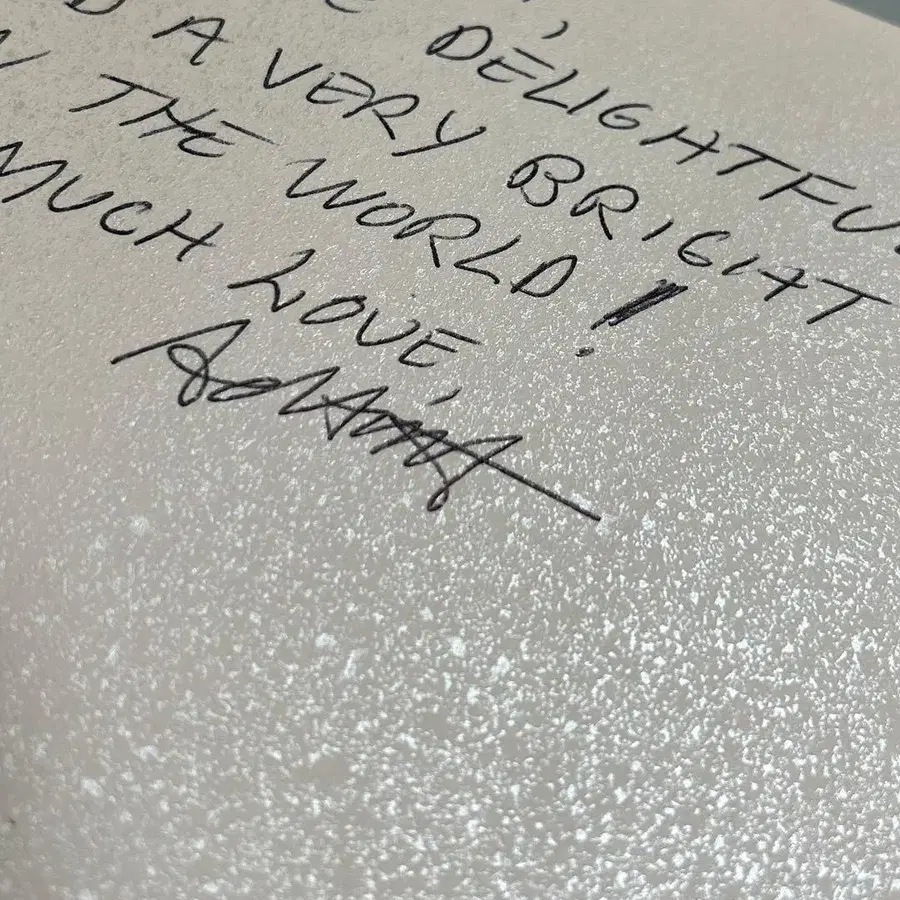 DELIGHTFU
A VERY BRIGHT
THE WORLD!
MUCH LOVE,